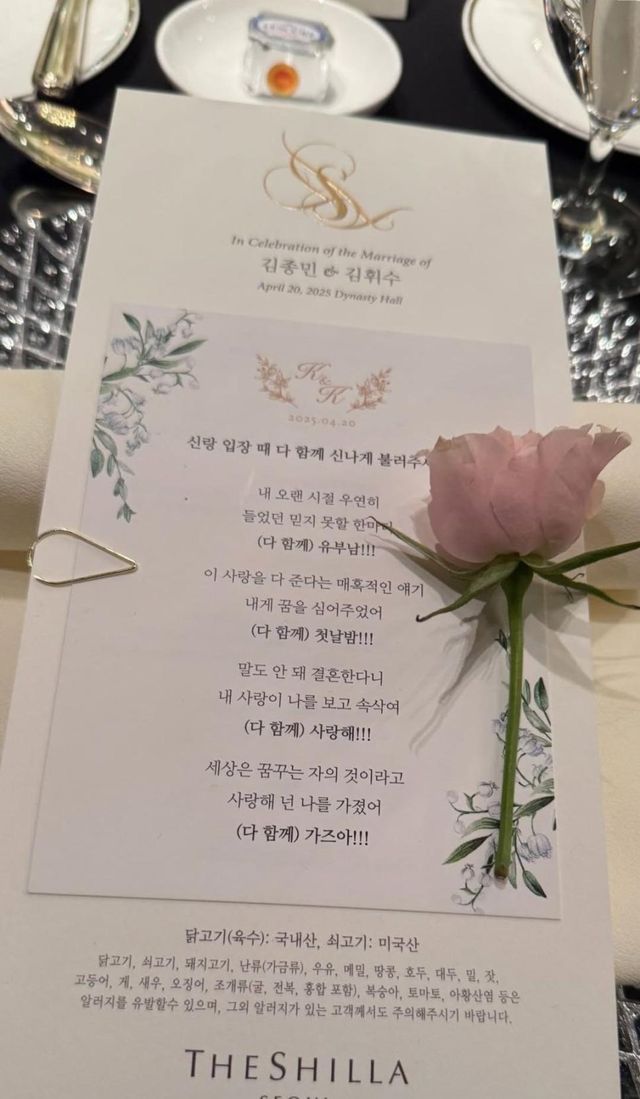 In Celebration of the Marriage of
김종민 & 김휘수
April 20, 2025 Dynasty Hall
K & K
2025.04.20
신랑 입장 때 다 함께 신나게 불러주
내 오랜 시절 우연히
들었던 믿지 못할 한마디
(다 함께) 유부남!!!
이 사랑을 다 준다는 매혹적인 얘기
내게 꿈을 심어주었어
(다 함께) 첫날밤!!!
말도 안 돼 결혼한다니
내 사랑이 나를 보고 속삭여
(다 함께) 사랑해!!!
세상은 꿈꾸는 자의 것이라고
사랑해 넌 나를 가졌어
(다 함께) 가즈아!!!
닭고기(육수): 국내산, 쇠고기: 미국산
닭고기, 쇠고기, 돼지고기, 난류(가금류), 우유, 메밀, 땅콩, 호두, 대두, 밀, 잣,
고등어, 게, 새우, 오징어, 조개류(굴, 전복, 홍합 포함), 복숭아, 토마토, 아황산염 등은
알러지를 유발할수 있으며, 그외 알러지가 있는 고객께서도 주의해주시기 바랍니다.
THE SHILLA
SEOUL